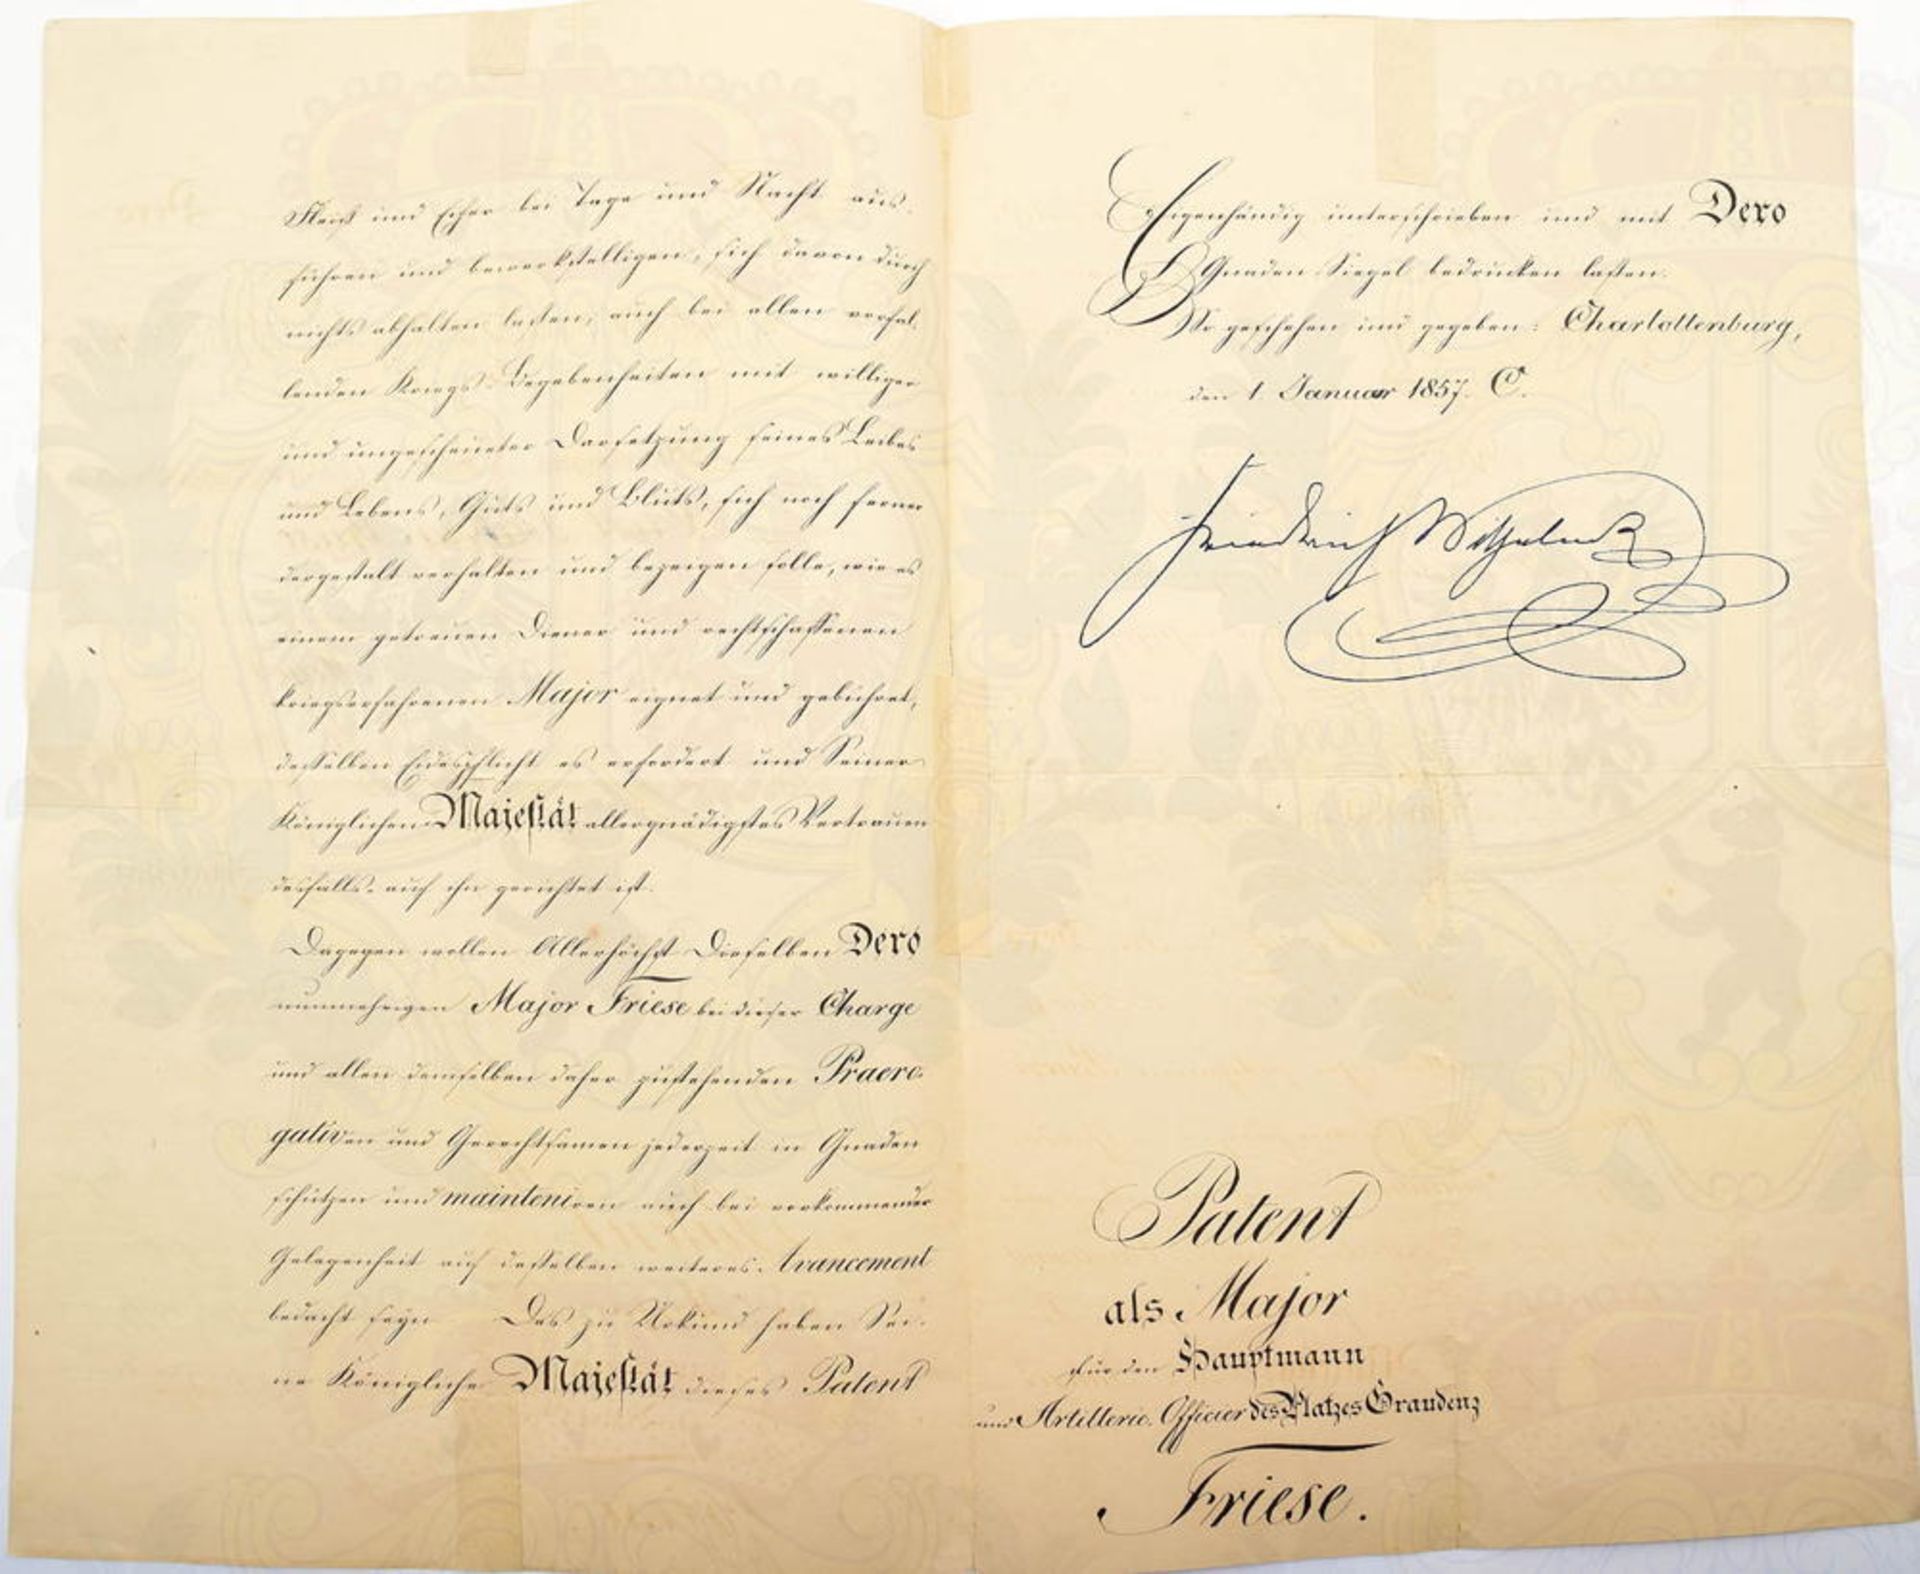 Fleiß und Eifer bei Tage und Nacht aus-
führen und bewerkstelligen, sich davon durch
nichts abhalten lassen, auch bei allen vorfal-
lenden Kriegs-Begebenheiten mit williger
und ungescheueter Darsetzung seines Leibes
und Lebens, Guts und Bluts, sich noch ferner
dergestalt verhalten und bezeigen solle, wie es
einem getreuen Diener und rechtschaffenen
kriegserfahrenen Major eignet und gebühret,
desselben Eidespflicht es erfordert und Seiner
Königlichen Majestät allergnädigstes Vertrauen
desfalls auf ihn gerichtet ist.
Dagegen wollen Allerhöchst-Dieselben Dero
nunmehrigen Major Friese bei dieser Charge
und allen demselben daher zustehenden Praero-
gativen und Gerechtsamen jederzeit in Gnaden
schützen und mainteniren auch bei vorkommender
Gelegenheit auf desselben weiteres Avancement
bedacht seyn. Des zu Urkund haben Sei-
ne Königliche Majestät dieses Patent
Eigenhändig unterschrieben und mit Dero
Gnaden-Siegel bedrucken lassen.
So geschehen und gegeben: Charlottenburg,
den 1. Januar 1857. C.
Friedrich Wilhelm
Patent
als Major
für den Hauptmann
und Artillerie-Officier des Platzes Graudenz
Friese.